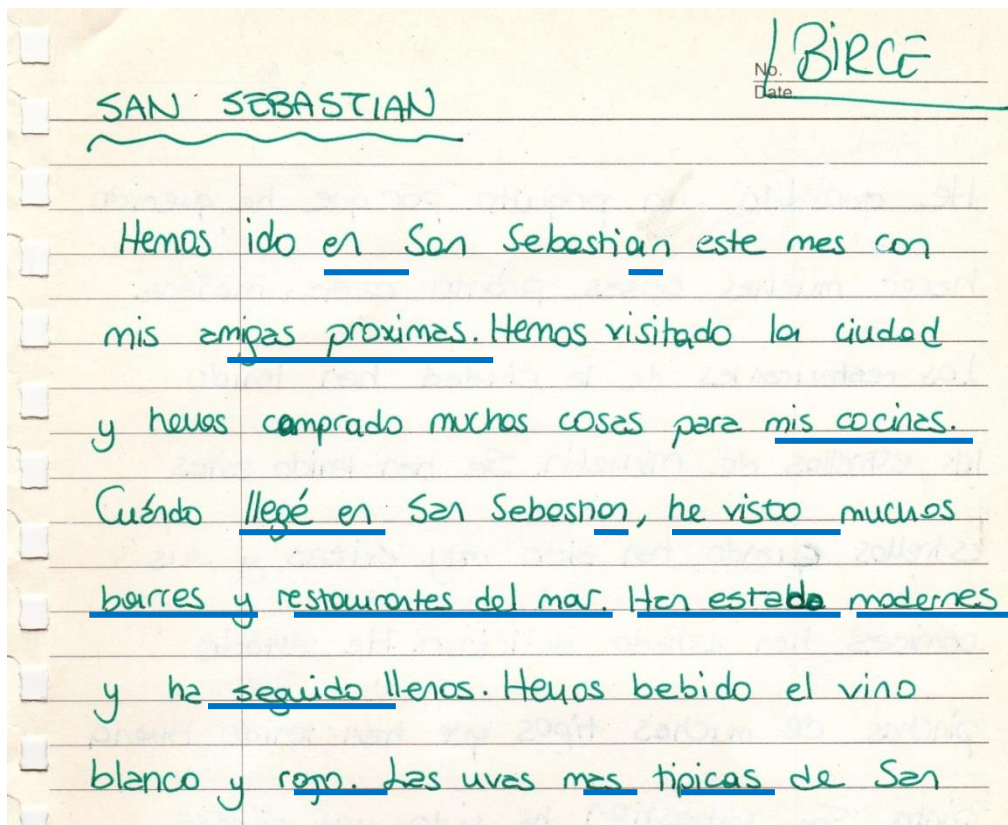 No.
Date
BIRCE
SAN SEBASTIAN
Hemos ido en San Sebastian este mes con
mis amigas proximas. Hemos visitado la ciudad
y hemos comprado muchas cosas para mis cocinas.
Cuándo llegé en San Sebastian, he visto muchos
barres y restaurantes del mar. Han estado modernes
y ha seguido llenos. Hemos bebido el vino
blanco y rojo. Las uvas mas tipicas de San